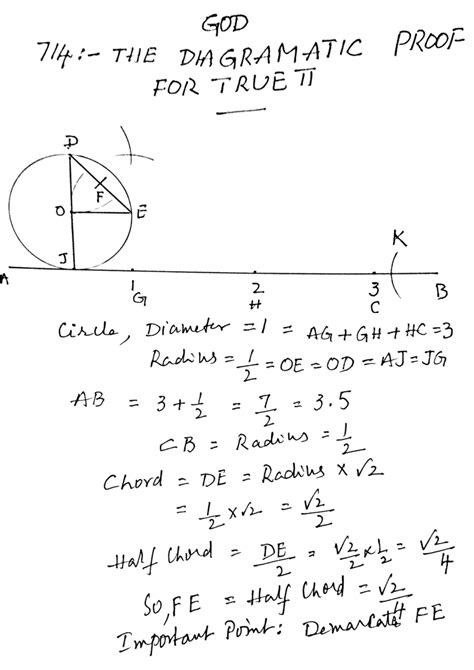 GOD
714:- THE DIAGRAMATIC PROOF
FOR TRUE π
D
F
O
E
J
K
A
1
2
3
G
H
C
B
Circle, Diameter = 1 = AG + GH + HC = 3
Radius = 1/2 = OE = OD = AJ = JG
AB = 3 + 1/2 = 7/2 = 3.5
CB = Radius = 1/2
Chord = DE = Radius × √2
= 1/2 × √2 = √2/2
Half Chord = DE/2 = √2/2 × 1/2 = √2/4
So, FE = Half Chord = √2/4
Important Point: Demarcate FE